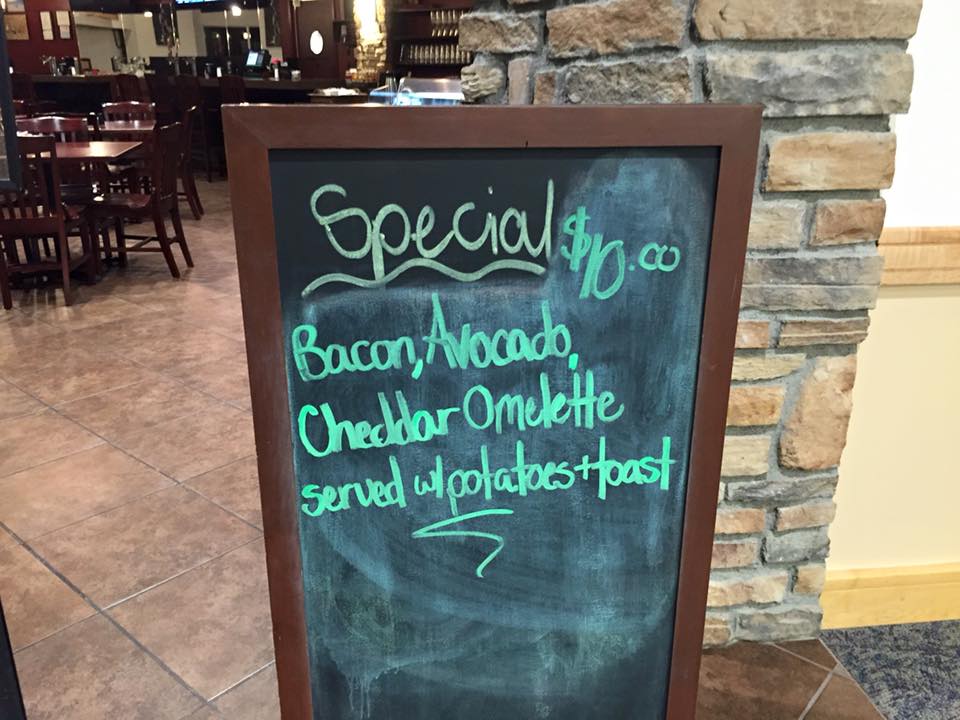 Special $10.00
Bacon, Avocado,
Cheddar Omelette
served w/potatoes+toast